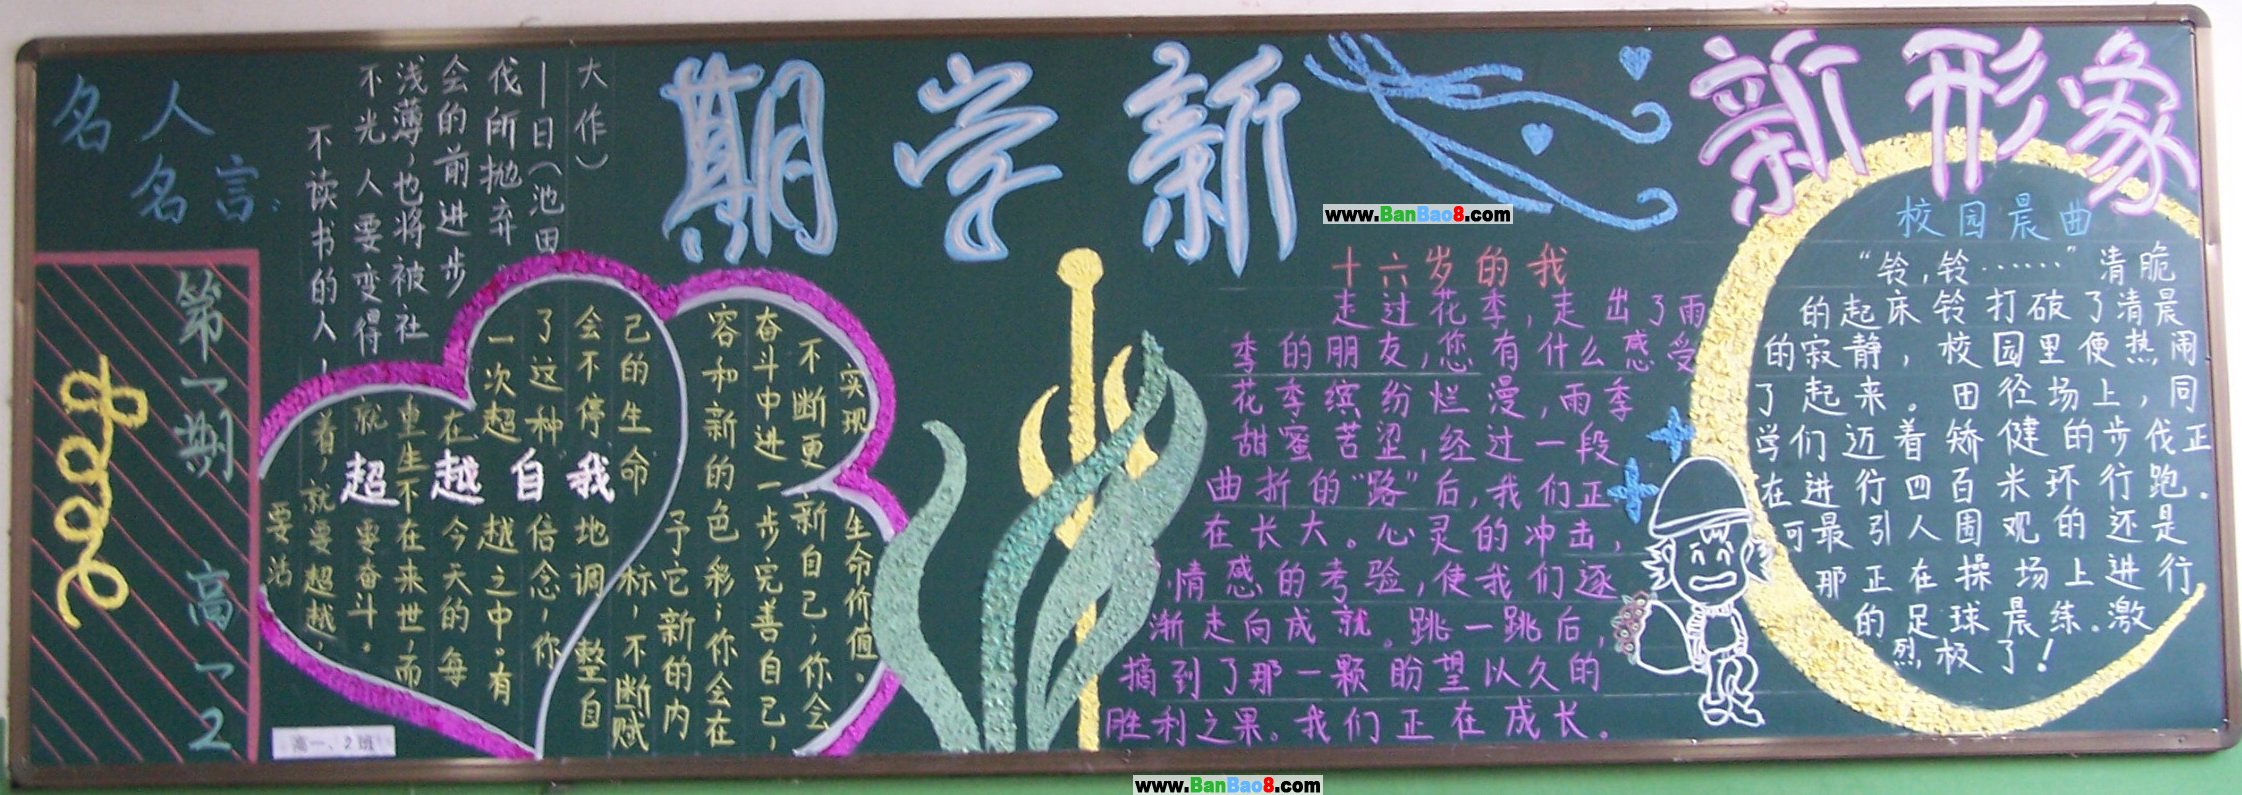 名人
名言:
不读书的人!
不光人要变得
浅薄,也将被社
会的前进步
伐所抛弃
—日(池田
大作)
第一期 高一2
超越自我
要活
着,就要超越,
就要奋斗。
重生不在来世,而
在今天的每
一次超越之中。有
了这种信念,你
会不停地调整自
己的生命标,不断赋
予它新的内
容和新的色彩;你会在
奋斗中进一步完善自己,
不断更新自己,你会
实现生命价值。
高一、2班
期学新
新形象
www.BanBao8.com
十六岁的我
走过花季,走出了雨
季的朋友,您有什么感受
花季缤纷烂漫,雨季
甜蜜苦涩,经过一段
曲折的“路”后,我们正
在长大。心灵的冲击,
情感的考验,使我们逐
渐走向成就。跳一跳后,
摘到了那一颗盼望以久的
胜利之果。我们正在成长。
校园晨曲
“铃,铃……”清脆
的起床铃打破了清晨
的寂静,校园里便热闹
了起来。田径场上,同
学们迈着矫健的步伐正
在进行四百米环行跑.
可最引人围观的还是
那正在操场上进行
的足球晨练.激
烈极了!
www.BanBao8.com